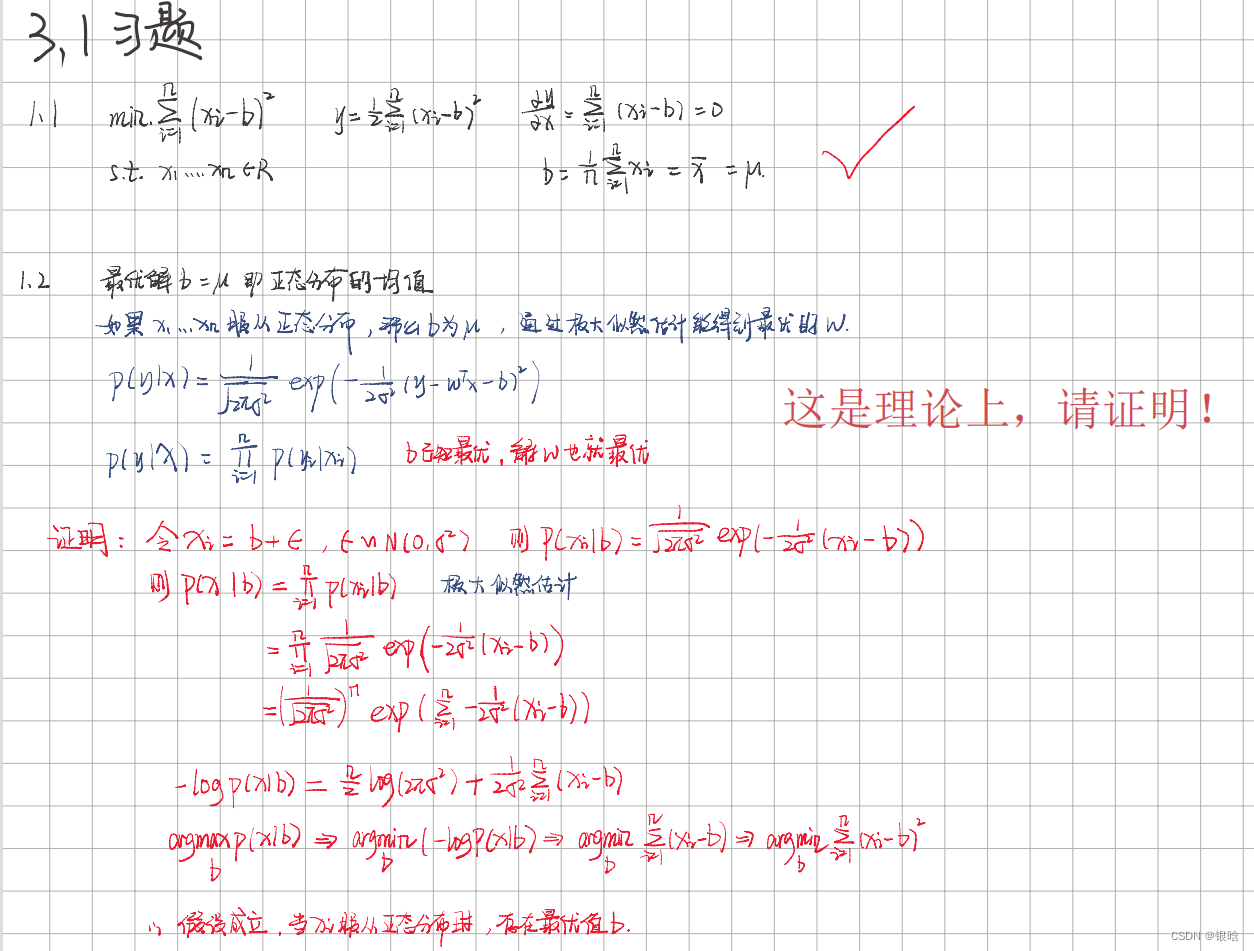 3,1 习题
1.1 min. ∑_{i=1}^{n} (xi-b)² y=½∑_{i=1}^{n} (xi-b)² ∂y/∂x = ∑_{i=1}^{n} (xi-b) = 0
s.t. x1....xn ∈R b = 1/n ∑_{i=1}^{n} xi = x̄ = μ.
1.2 最优解 b=μ 即 正态分布的均值
如果 x1...xn 服从正态分布, 那么b为μ, 通过极大似然估计能得到最优的W.
p(y|x) = 1/√(2πσ²) exp(-1/2σ² (y-wᵀx-b)²)
这是理论上，请证明！
p(y|X) = ∏_{i=1}^{n} p(yi|xi) b已知最优, 解w也就最优
证明: 令 xi = b+ϵ, ϵ~N(0,σ²) 则 P(xi|b) = 1/√(2πσ²) exp(-1/2σ² (xi-b))
则 P(x|b) = ∏_{i=1}^{n} p(xi|b) 极大似然估计
= ∏_{i=1}^{n} 1/√(2πσ²) exp(-1/2σ² (xi-b))
= (1/√(2πσ²))ⁿ exp(∑_{i=1}^{n} -1/2σ² (xi-b))
-log p(x|b) = n/2 log(2πσ²) + 1/2σ² ∑_{i=1}^{n} (xi-b)
argmax_b p(x|b) ⇒ argmin_b (-logP(x|b) ⇒ argmin_b ∑_{i=1}^{n} (xi-b) ⇒ argmin_b ∑_{i=1}^{n} (xi-b)²
∴ 假设成立, 当xi服从正态分布时, 存在最优值b.
CSDN @银晗